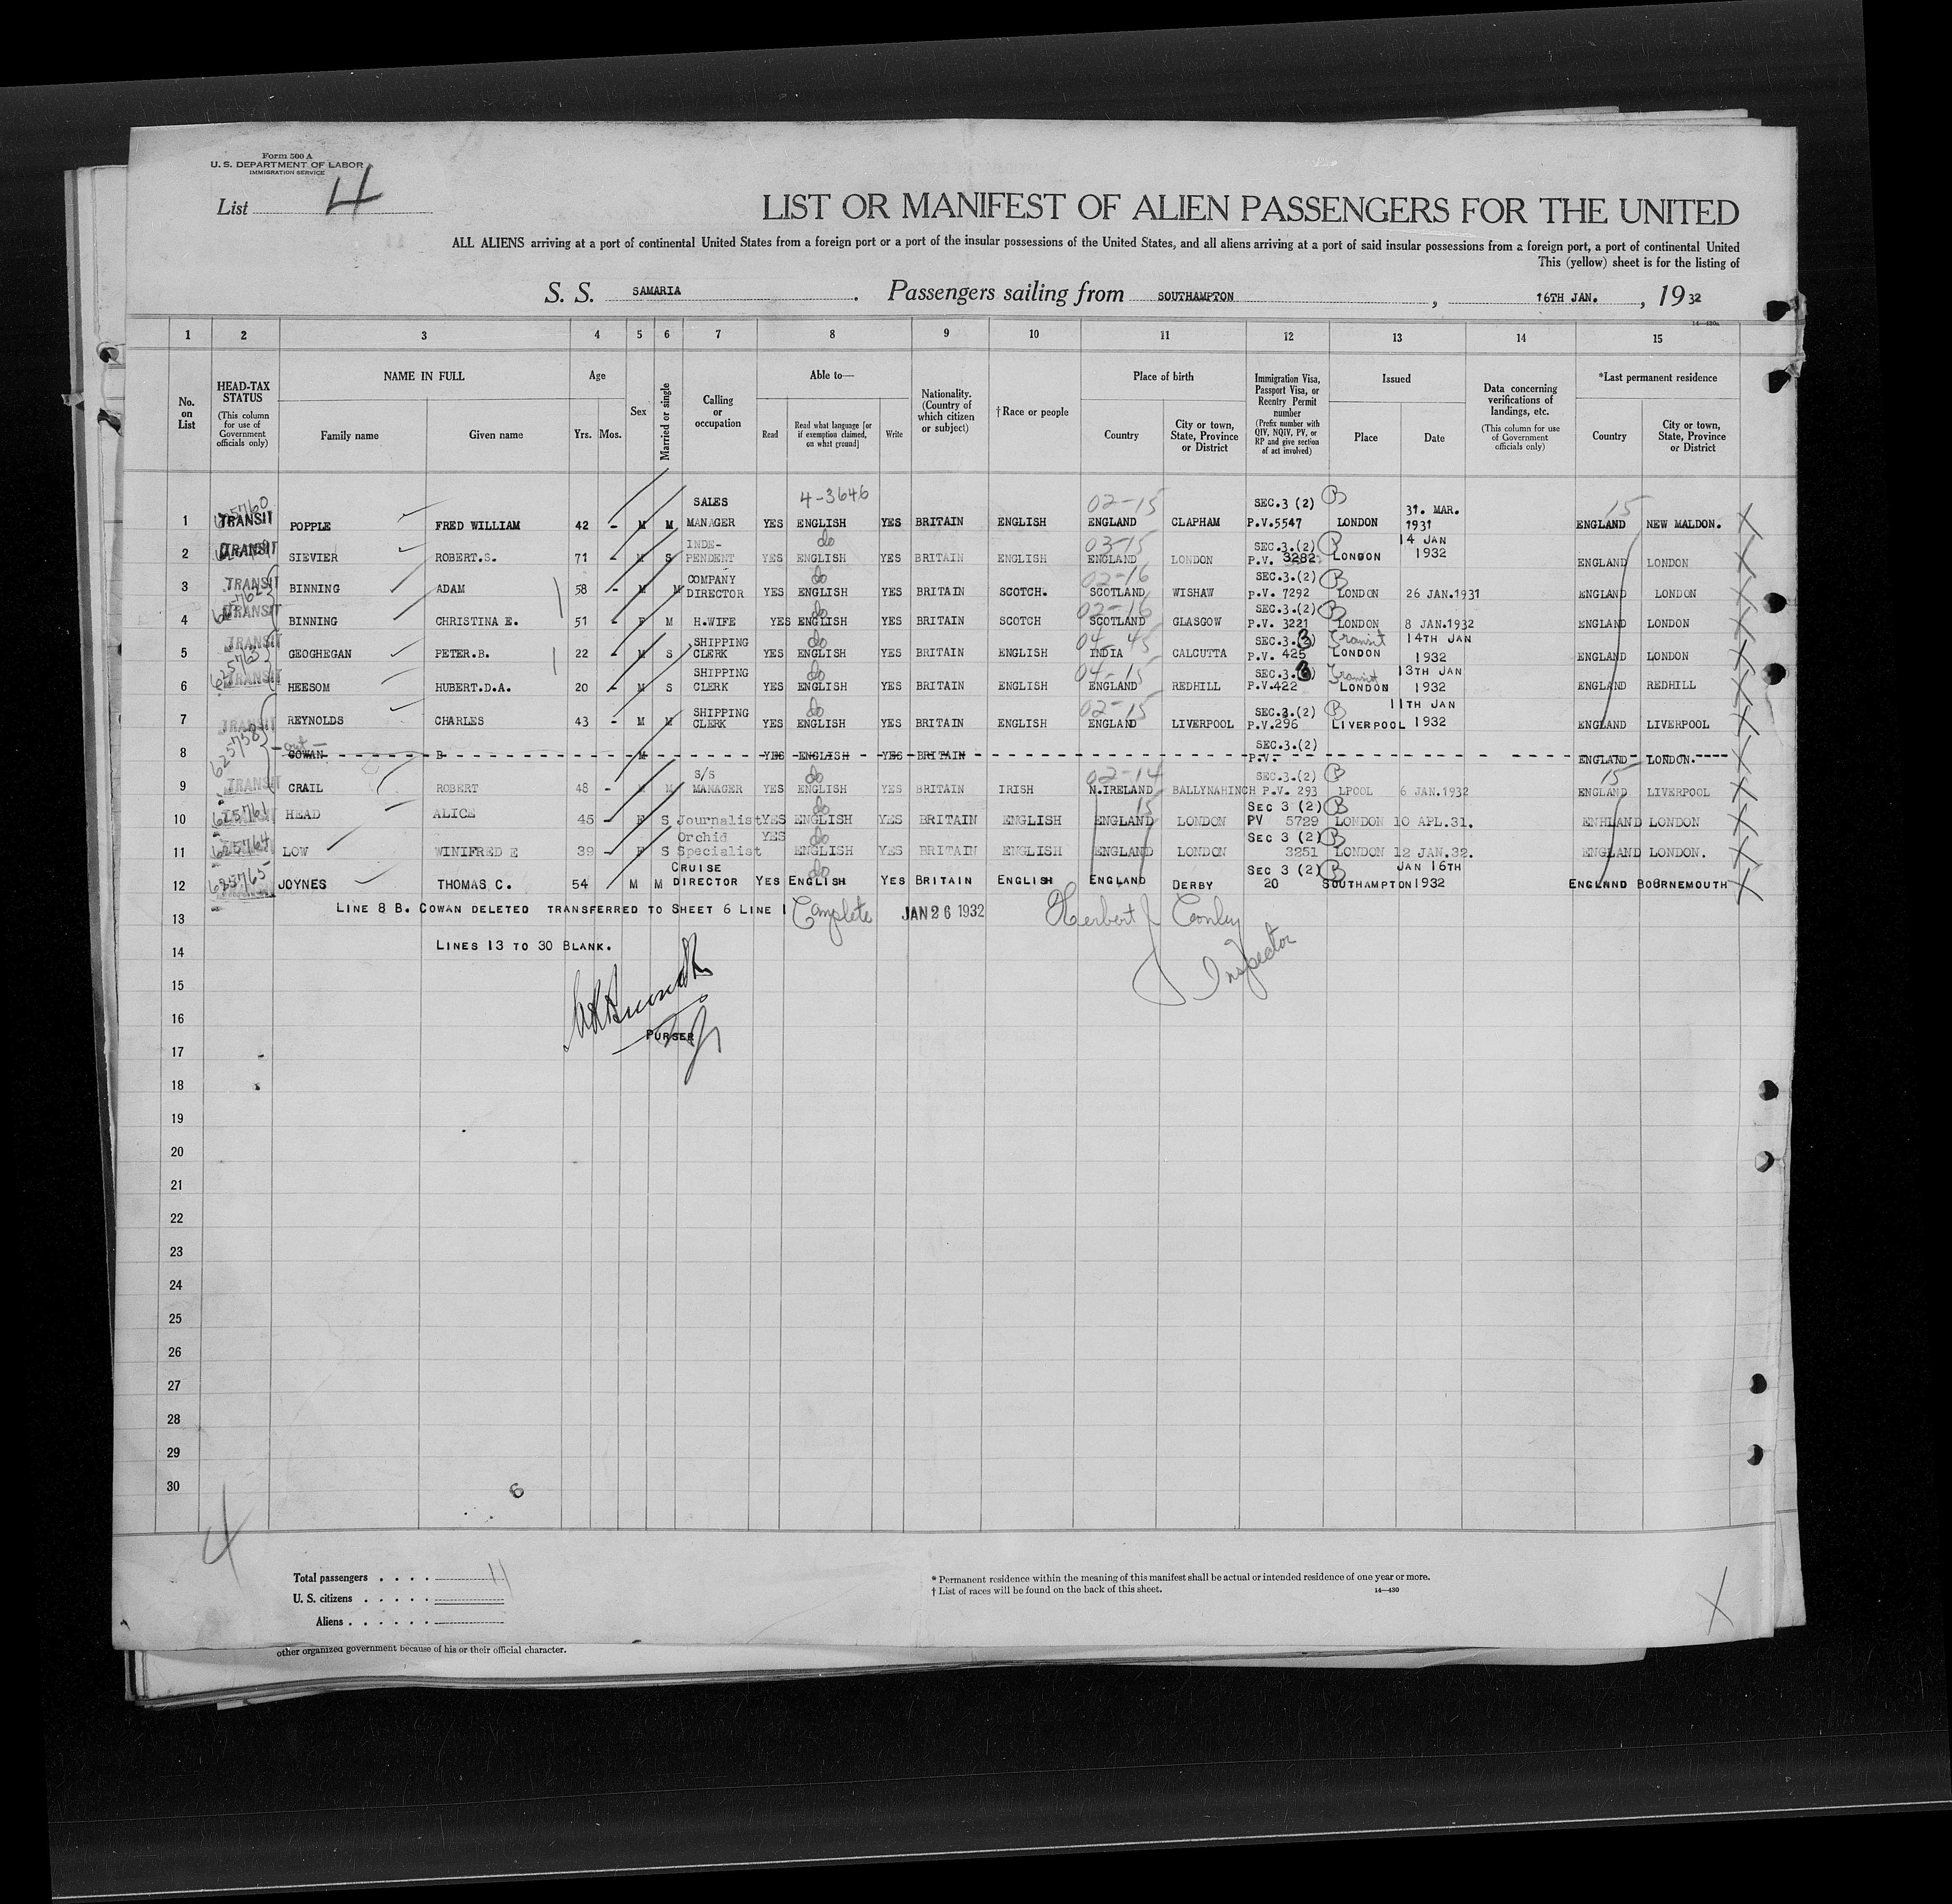 Form 500 A
U. S. DEPARTMENT OF LABOR
IMMIGRATION SERVICE
List 4
LIST OR MANIFEST OF ALIEN PASSENGERS FOR THE UNITED
ALL ALIENS arriving at a port of continental United States from a foreign port or a port of the insular possessions of the United States, and all aliens arriving at a port of said insular possessions from a foreign port, a port of continental United
This (yellow) sheet is for the listing of
S. S. SAMARIA. Passengers sailing from SOUTHAMPTON, 16TH JAN., 1932
14—430a
1 2 3 4 5 6 7 8 9 10 11 12 13 14 15
No. on List
HEAD-TAX STATUS (This column for use of Government officials only)
NAME IN FULL Family name Given name
Age Yrs. Mos.
Sex
Married or single
Calling or occupation
Able to— Read Read what language [or if exemption claimed, on what ground] Write
Nationality. (Country of which citizen or subject)
†Race or people
Place of birth Country City or town, State, Province or District
Immigration Visa, Passport Visa, or Reentry Permit number (Prefix number with QIV, NQIV, PV, or RP and give section of act involved)
Issued Place Date
Data concerning verifications of landings, etc. (This column for use of Government officials only)
*Last permanent residence Country City or town, State, Province or District
4-3646 02-15 15
1 625760 TRANSIT POPPLE FRED WILLIAM 42 - M M SALES MANAGER YES ENGLISH YES BRITAIN ENGLISH ENGLAND CLAPHAM SEC.3 (2) P.V.5547 B LONDON 31. MAR. 1931 ENGLAND NEW MALDON. X
2 TRANSIT SIEVIER ROBERT.S. 71 - M S INDE-PENDENT YES ENGLISH do YES BRITAIN ENGLISH 03-15 ENGLAND LONDON SEC.3.(2) P.V. 3282 B LONDON 14 JAN 1932 ENGLAND LONDON X
3 TRANSIT BINNING ADAM 58 - M M COMPANY DIRECTOR YES ENGLISH do YES BRITAIN SCOTCH. 02-16 SCOTLAND WISHAW SEC.3.(2) P.V. 7292 B LONDON 26 JAN.1931 ENGLAND LONDON X
4 TRANSIT BINNING CHRISTINA E. 51 - F M H.WIFE YES ENGLISH do YES BRITAIN SCOTCH 02-16 SCOTLAND GLASGOW SEC.3.(2) P.V. 3221 B LONDON 8 JAN.1932 ENGLAND LONDON X
5 625763 TRANSIT GEOGHEGAN PETER.B. 22 - M S SHIPPING CLERK YES ENGLISH do YES BRITAIN ENGLISH 04-45 INDIA CALCUTTA SEC.3.(3) P.V. 425 Transit LONDON 14TH JAN 1932 ENGLAND LONDON X
6 TRANSIT HEESOM HUBERT.D.A. 20 - M S SHIPPING CLERK YES ENGLISH do YES BRITAIN ENGLISH 04-15 ENGLAND REDHILL SEC.3.(3) P.V.422 Transit LONDON 13TH JAN 1932 ENGLAND REDHILL X
7 625758 TRANSIT REYNOLDS CHARLES 43 - M M SHIPPING CLERK YES ENGLISH do YES BRITAIN ENGLISH 02-15 ENGLAND LIVERPOOL SEC.3.(2) P.V.296 B LIVERPOOL 11TH JAN 1932 ENGLAND LIVERPOOL X
8 -out- COWAN B M YES ENGLISH YES BRITAIN SEC.3.(2) P.V. ENGLAND LONDON. X
9 TRANSIT CRAIL ROBERT 48 - M M S/S MANAGER YES ENGLISH do YES BRITAIN IRISH 02-14 N.IRELAND BALLYNAHINCH SEC.3.(2) P.V. 293 B LPOOL 6 JAN.1932 15 ENGLAND LIVERPOOL X
10 625761 HEAD ALICE 45 - F S Journalist YES ENGLISH do YES BRITAIN ENGLISH 15 ENGLAND LONDON SEC 3 (2) PV 5729 B LONDON 10 APL.31. ENHLAND LONDON X
11 625764 LOW WINIFRED E 39 - F S Orchid Specialist YES ENGLISH do YES BRITAIN ENGLISH ENGLAND LONDON SEC 3 (2) 3251 B LONDON 12 JAN.32. ENGLAND LONDON. X
12 625765 JOYNES THOMAS C. 54 M M CRUISE DIRECTOR YES ENGLISH do YES BRITAIN ENGLISH ENGLAND DERBY SEC 3 (2) 20 B SOUTHAMPTON JAN 16TH 1932 ENGLAND BOURNEMOUTH X
13 LINE 8 B. COWAN DELETED TRANSFERRED TO SHEET 6 LINE 1 Complete JAN 26 1932 Herbert J Conley
Inspector
14 LINES 13 TO 30 BLANK.
15
16
PURSER
17
18
19
20
21
22
23
24
25
26
27
28
29
30
6
4
Total passengers . . . . 11
U. S. citizens . . . . .
Aliens . . . . . .
* Permanent residence within the meaning of this manifest shall be actual or intended residence of one year or more.
† List of races will be found on the back of this sheet. 14—430
X
other organized government because of his or their official character.